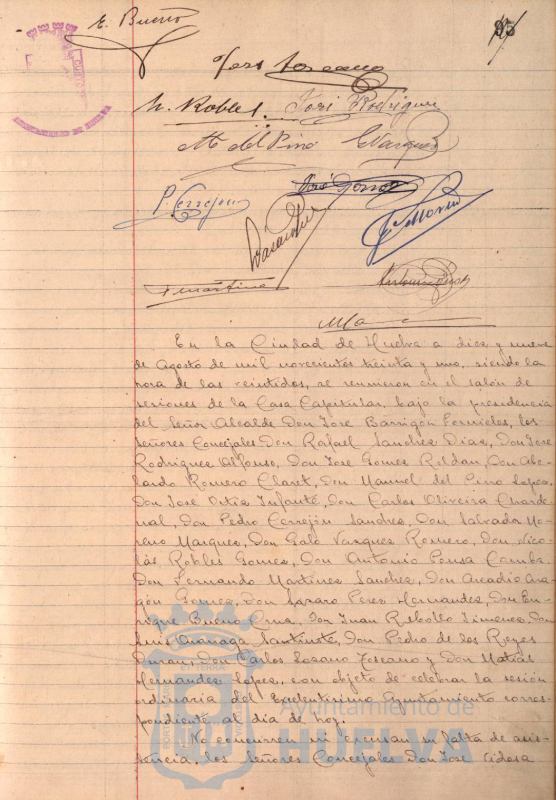 E. Bueno
95
José Lozano
N. Robles. José Rodriguez
M. del Pino G Vazquez
P. Cerrejon José Gomez
S. Moreno
F Martinez Antonio Ponsa
En la Ciudad de Huelva a diez y nueve
de Agosto de mil novecientos treinta y uno, siendo la
hora de las veintidos, se reunieron en el salón de
sesiones de la Casa Capitular, bajo la presidencia
del Señor Alcalde Don José Barrigón Fornieles, los
señores Concejales Don Rafael Sanchez Diaz, Don José
Rodriguez Alfonso, Don José Gomez Roldan, Don Abe-
lardo Romero Claret, Don Manuel del Pino Lopez,
Don José Ortiz Infante, Don Carlos Oliveira Chard-
enal, Don Pedro Cerrejón Sanchez, Don Salvador Mo-
reno Marquez, Don Galo Vazquez Romero, Don Nico-
lás Robles Gomez, Don Antonio Ponsa Camba,
Don Fernando Martinez Sanchez, Don Arcadio Ara-
gón Gomez, Don Lazaro Perez Hernandez, Don En-
rique Bueno Cruz, Don Juan Rebollo Jimenez, Don
Luis Don Pedro de los Reyes
Duran, Don Carlos Lozano Toscano y Don Matias
Hernandez Lopez, con objeto de celebrar la sesión
ordinaria del Exelentisimo Ayuntamiento corres-
pondiente al dia de hoy.
No concurren ni excusan su falta de asis-
tencia, los Señores Concejales Don José
Ayuntamiento de
HUELVA